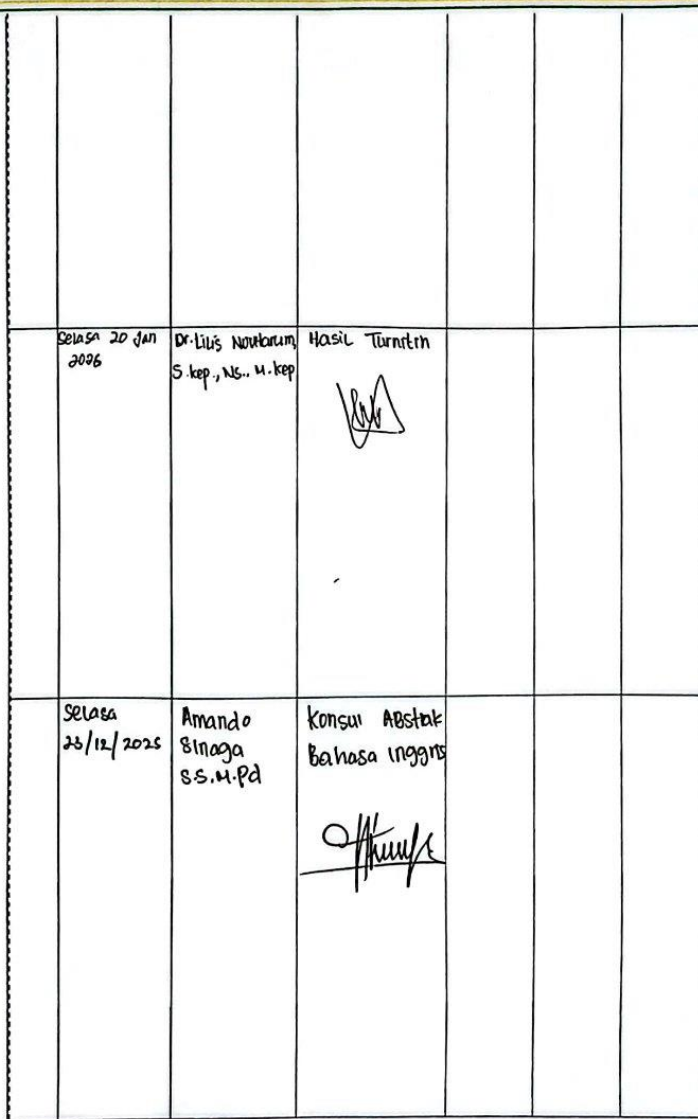 Selasa 20 Jan
2026
Dr. Lilis Novitarum,
S.kep., Ns., M.kep
Hasil Turnitin
Selasa
23/12/2025
Amando
Sinaga
S.S.M.Pd
Konsul ABstrak
Bahasa Inggris